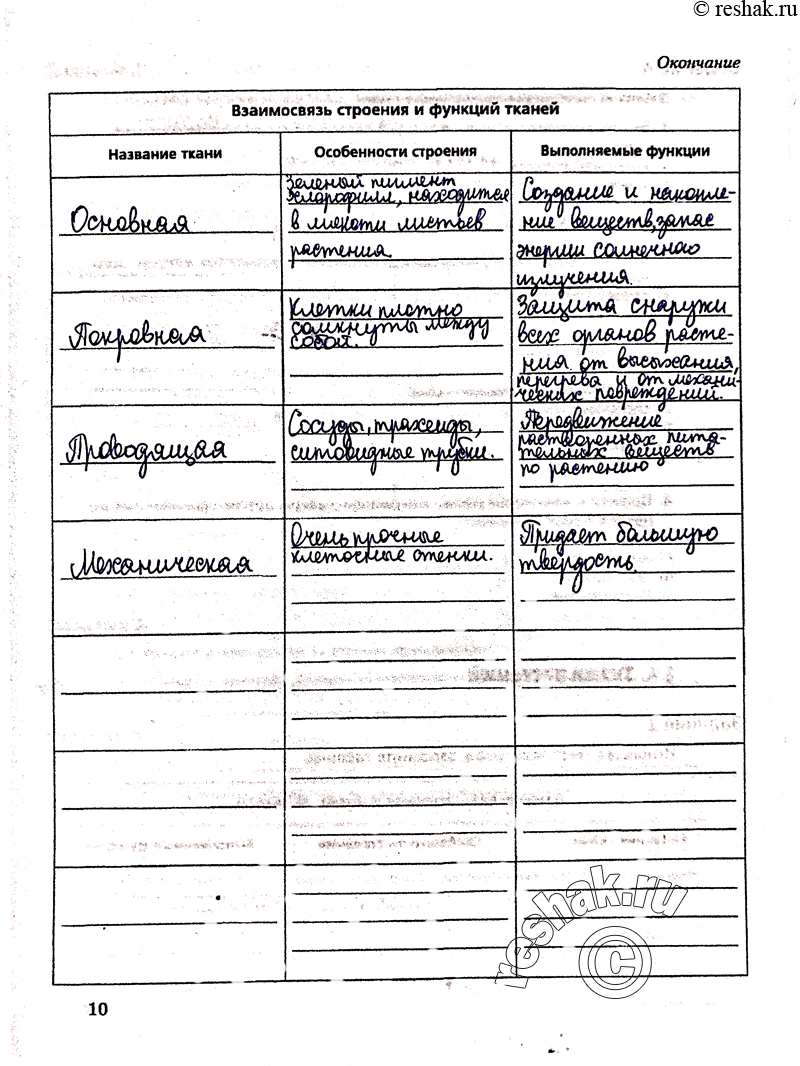 © reshak.ru
Окончание
Взаимосвязь строения и функций тканей
Название ткани
Особенности строения
Выполняемые функции
Основная
Зеленый пигмент
хлорофилл, находится
в мякоти листьев
растения.
Создание и накопле-
ние веществ, запас
энергии солнечного
излучения.
Покровная
Клетки плотно
сомкнуты между
собой.
Защита снаружи
всех органов расте-
ния от высыхания,
перегрева и от механи-
ческих повреждений.
Проводящая
Сосуды, трахеиды,
ситовидные трубки.
Передвижение
растворенных пита-
тельных веществ
по растению
Механическая
Очень прочные
клеточные стенки.
Придает большую
твердость
reshak.ru
©
10